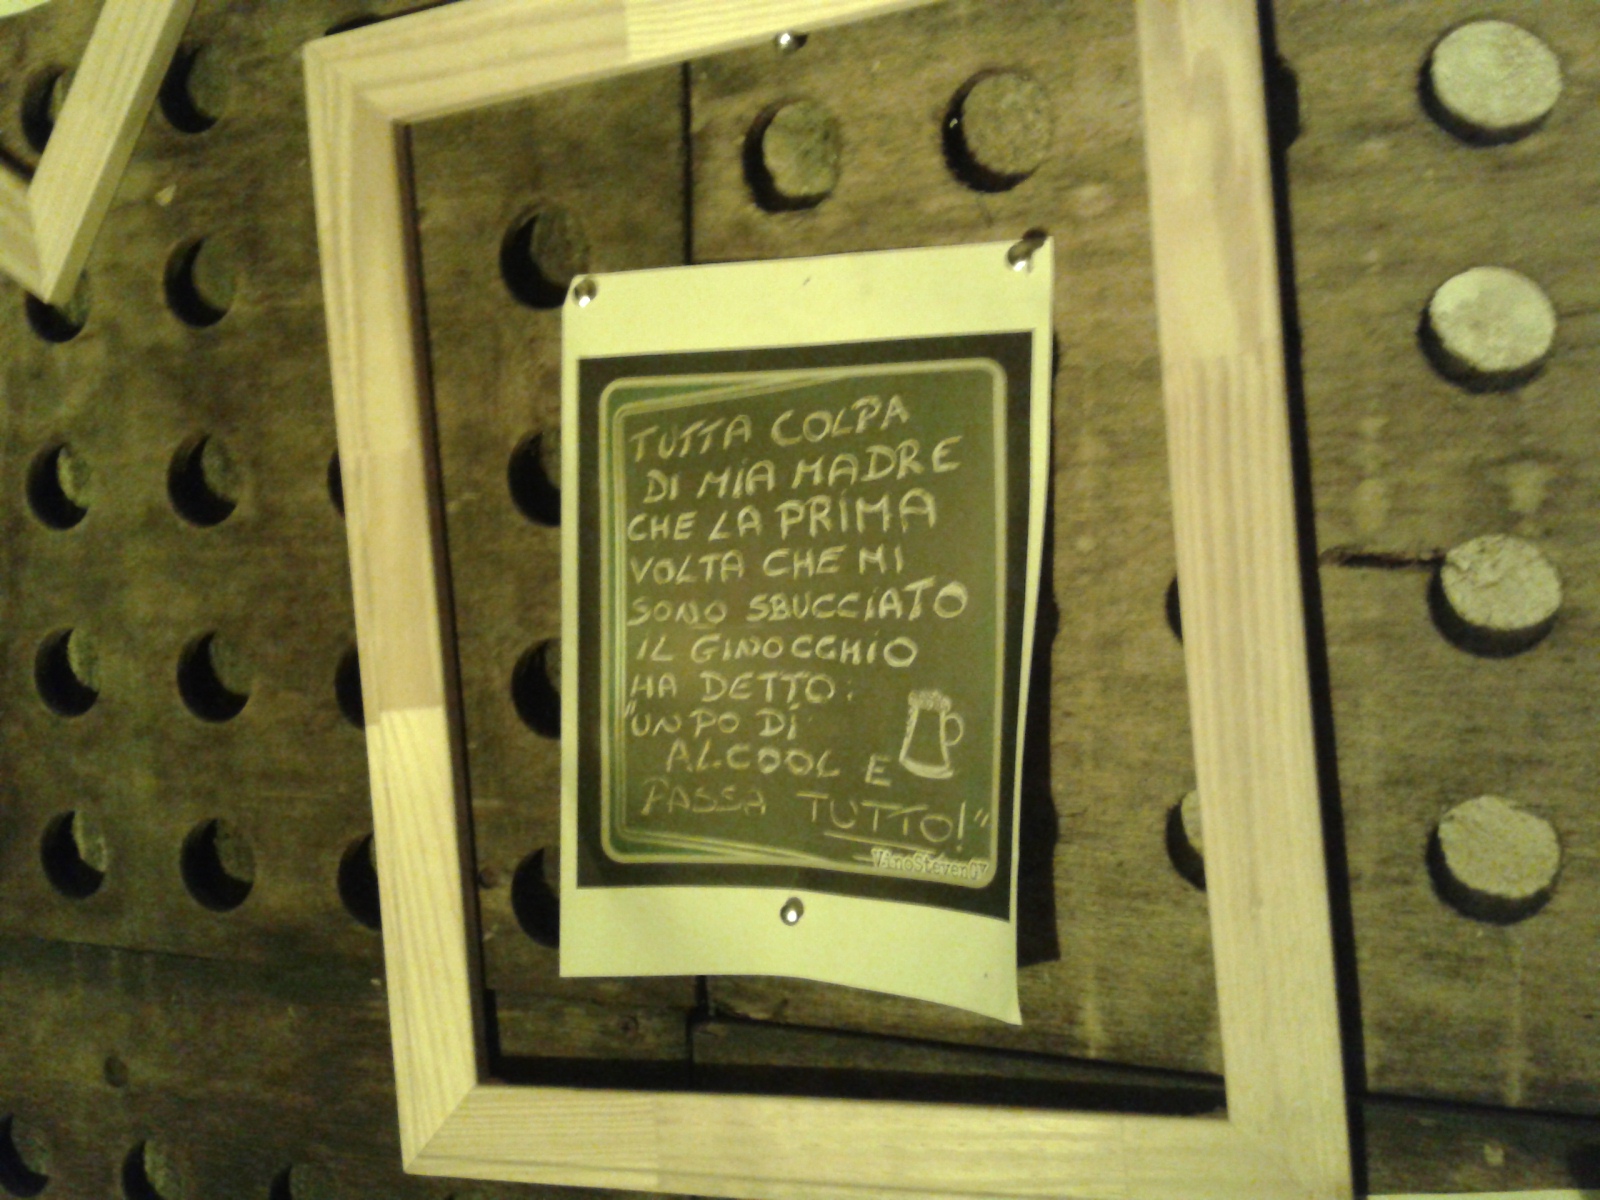 TUTTA COLPA
DI MIA MADRE
CHE LA PRIMA
VOLTA CHE MI
SONO SBUCCIATO
IL GINOCCHIO
HA DETTO:
"UN PO DI
ALCOOL E
PASSA TUTTO!"
VinoStevenGV